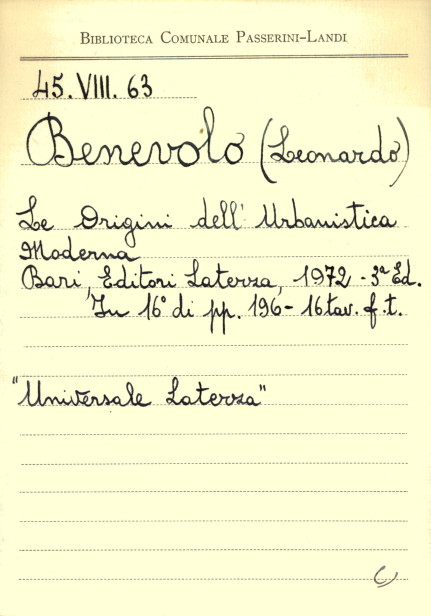 BIBLIOTECA COMUNALE PASSERINI-LANDI
45.VIII.63
Benevolo (Leonardo)
Le Origini dell'Urbanistica
Moderna
Bari, Editori Laterza, 1972 - 3ª Ed.
In 16° di pp. 196 - 16 tav. f.t.
"Universale Laterza"